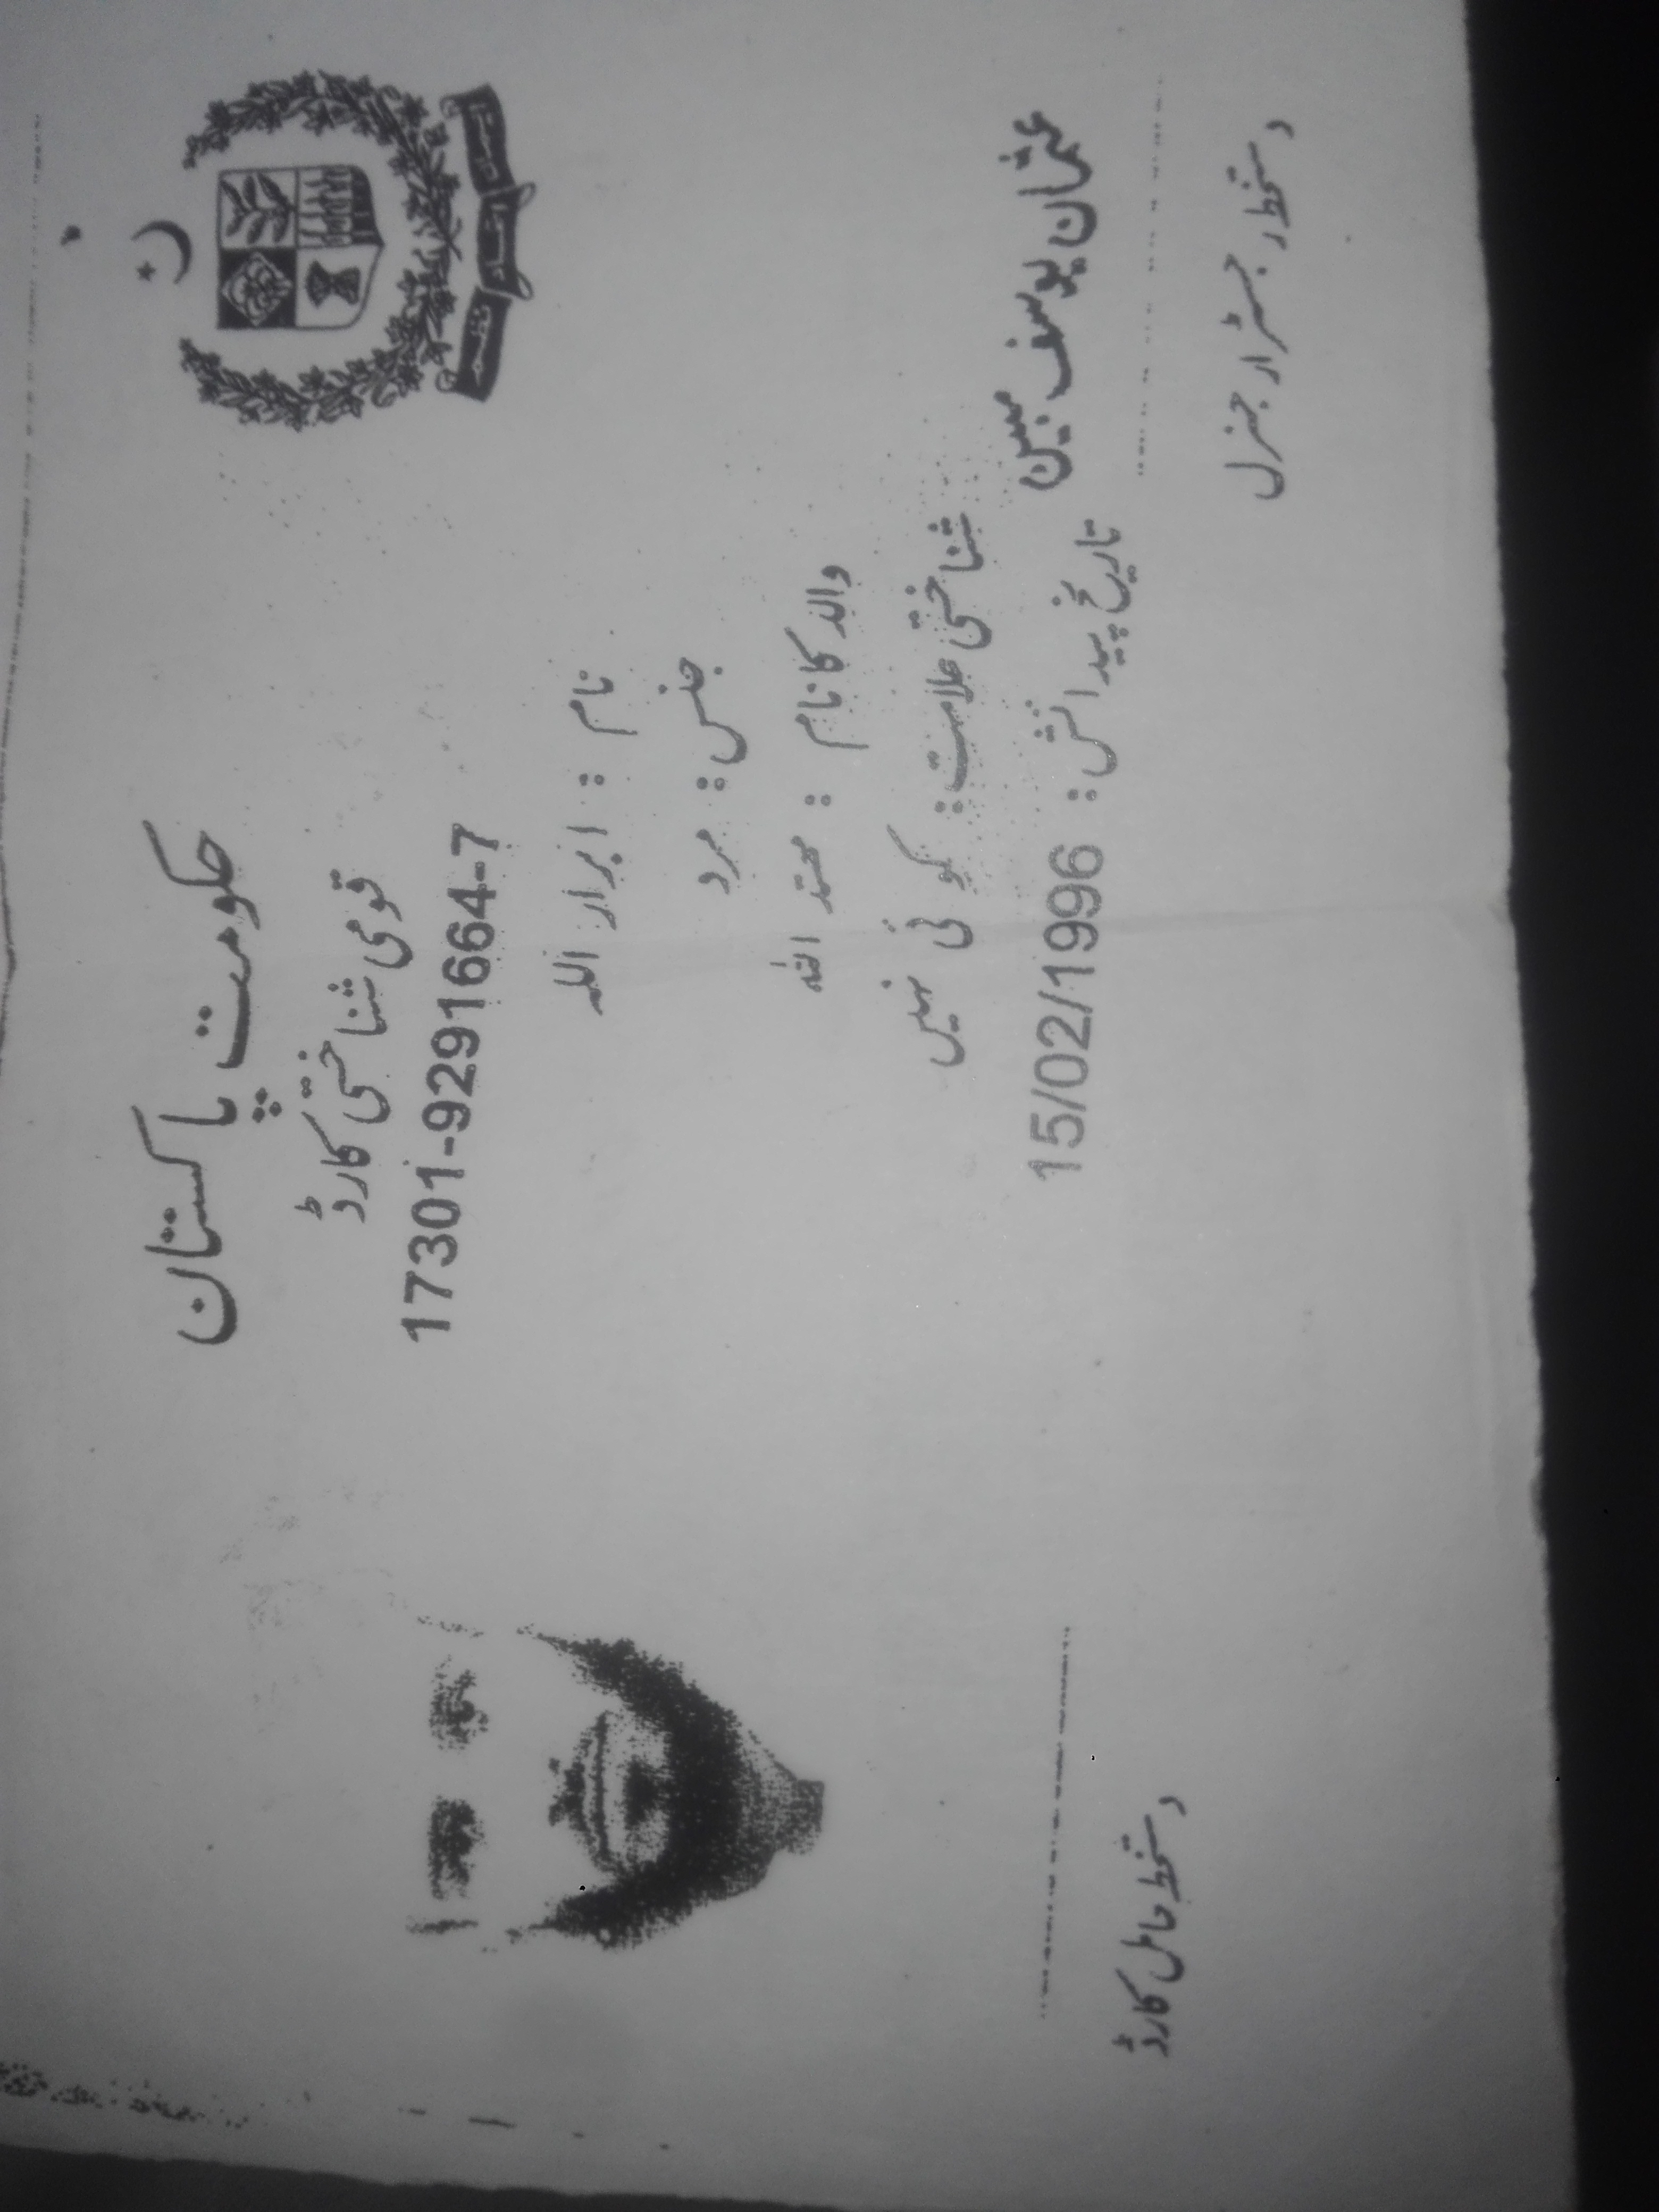 حکومت پاکستان
قومی شناختی کارڈ
17301-9291664-7
نام : ابرار اللہ
جنس : مرد
والد کا نام : محمد اللہ
شناختی علامت : کوئی نہیں
تاریخ پیدائش : 15/02/1996
عثمان یوسف مبین
دستخط رجسٹرار جنرل
دستخط حامل کارڈ